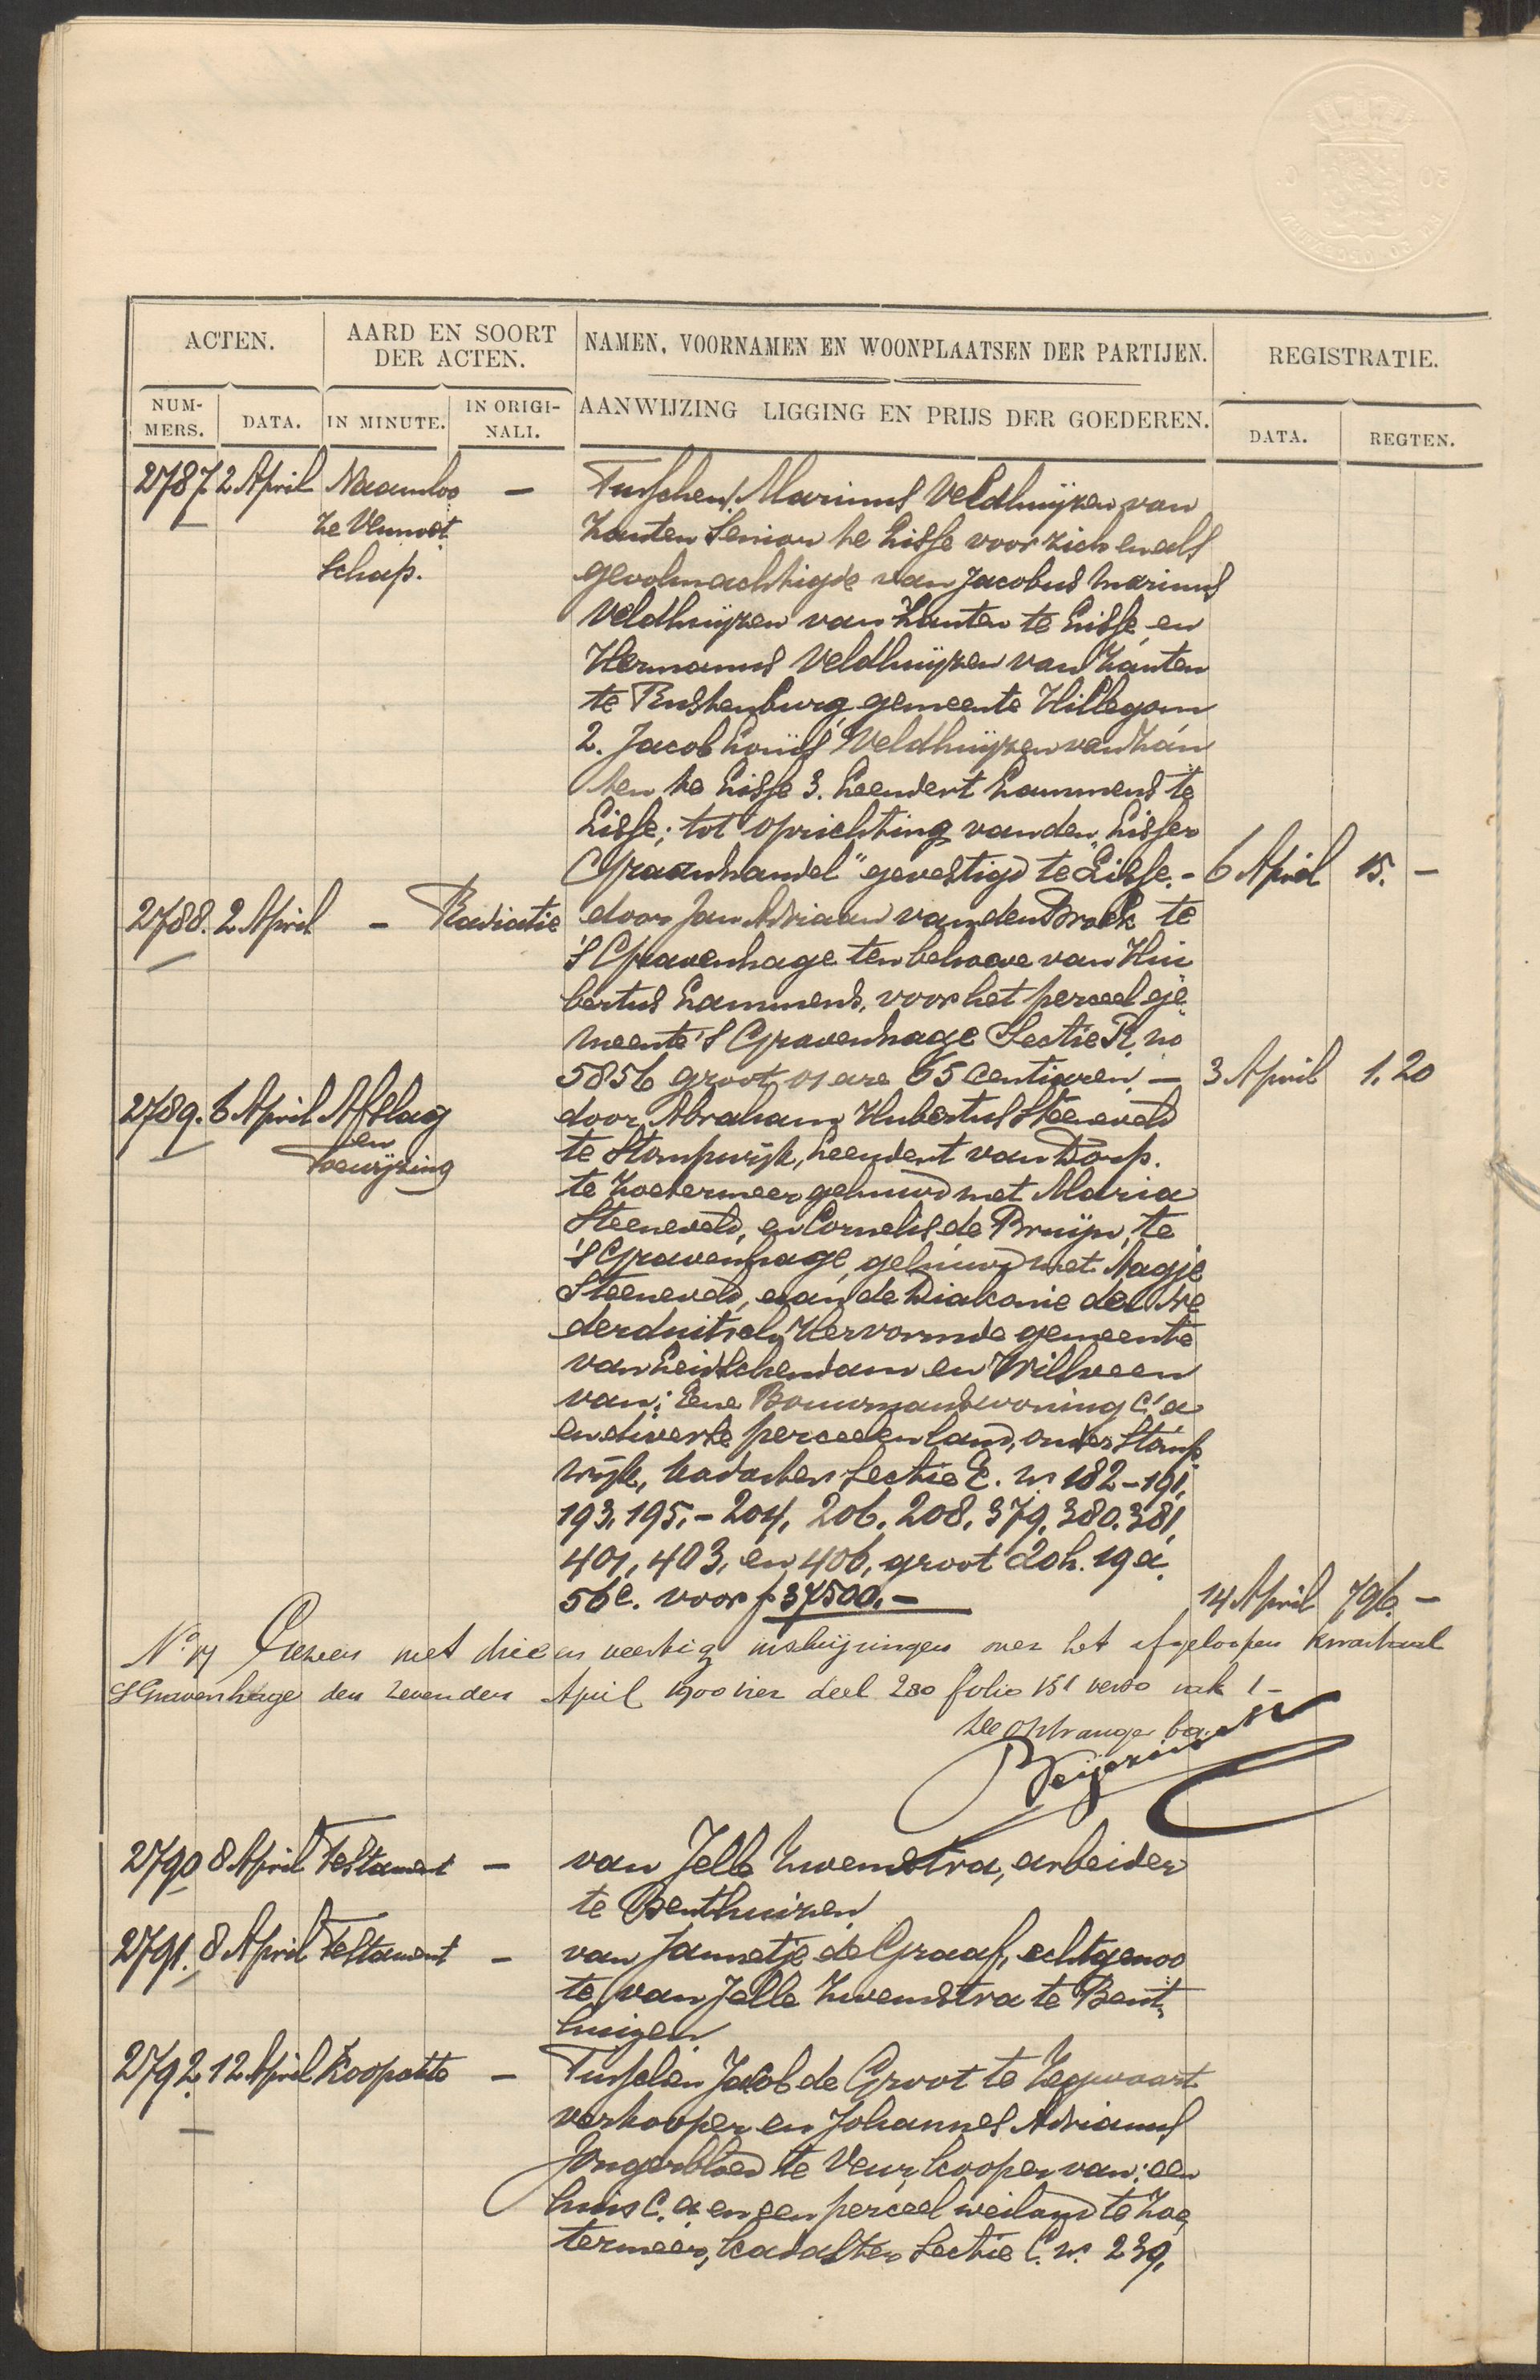 ACTEN.
AARD EN SOORT
DER ACTEN.
NAMEN, VOORNAMEN EN WOONPLAATSEN DER PARTIJEN.
REGISTRATIE.
NUM-
MERS.
DATA.
IN MINUTE.
IN ORIGI-
NALI.
AANWIJZING LIGGING EN PRIJS DER GOEDEREN.
DATA.
REGTEN.
2787. 2 April Naamloo - Tusschen 1. Marinus Veldhuijzen van
ze Vennoot Zanten Senior te Lisse voor zich en als
schap. gevolmachtigde van Jacobus Marinus
Veldhuijzen van Zanten te Lisse, en
Hermanus Veldhuijzen van Zanten
te Rustenburg, gemeente Hillegom
2. Jacob Louijs Veldhuijzen van Zan
ten te Lisse 3. Leendert Lammens te
Lisse; tot oprichting van den "Lisser
Graanhandel" gevestigd te Lisse. - 6 April 15. -
2788. 2 April - Radiatie door Jan Adriaan van den Broek te
's Gravenhage ten behoeve van Hui
bertus Lammens, voor het perceel ge
meente 's Gravenhage Sectie R. no
5856 groot 01 are 65 centiaren - 3 April 1.20
2789. 6 April Afslag door Abraham Hubertus Steeneveld
en te Stompwijk, Leendert van Dorp.
Toewijzing te Zoetermeer gehuwd met Maria
Steeneveld, en Cornelis de Bruijn, te
's Gravenhage, gehuwd met Aagje
Steeneveld, aan de Diakonie der Ne
derduitsch Hervormde gemeente
van Leidschendam en Wilsveen
van: Eene Bouwmanswoning c.a
en diverse perceelen land, onder Stomp
wijk, kadaster Sectie E. no 182-191,
193, 195,- 204, 206, 208, 379, 380. 381,
401, 403, en 406, groot 20 h. 19 a.
56 c. voor ƒ 37500.- 14 April 796. -
Gezien met drie en veertig inschrijvingen over het afgeloopen kwartaal
's Gravenhage den zevenden April 1900 vier deel 280 folio 151 verso vak 1 -
De Ontvanger
2790 8 April Testament - van Jelle Zwemstra, arbeider
te Benthuizen
2791. 8 April Testament - van Jannetje de Graaf, echtgenoo
te van Jelle Zwemstra te Bent
huizen
2792. 12 April Koopakte - Tusschen Jacob de Groot te Zegwaart
verkooper en Johannes Adrianus
Jongerbloed te Veur, kooper van: een
huis c.a en een perceel weiland te Zoe
termeer, kadaster Sectie C. no. 239,